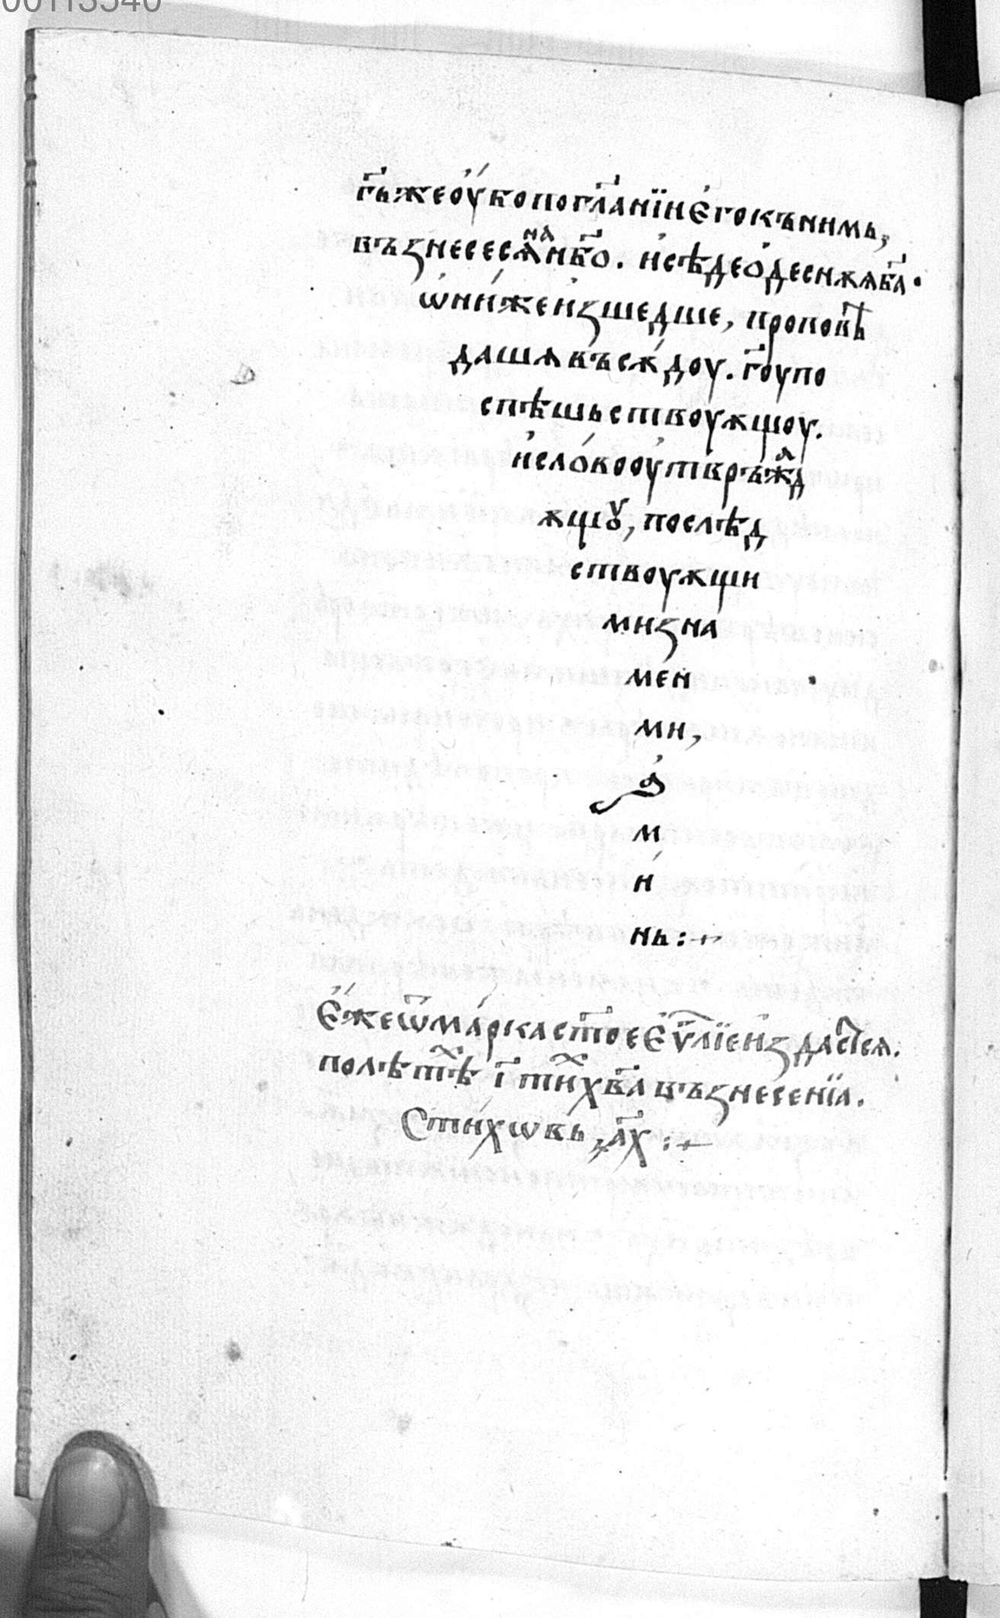 00113540
г҃ь же оу҆бо по гл҃анїи є҆го къ нимь,
възнесе сѧ на нб҃о. и҆ сѣде ѡ҆деснѫѧ б҃а.
ѡ҆ни́ же и҆зшедше, проповѣ
дашѧ въсѫ́доу. г҃оу по
спѣшьствоуѫщоу.
и҆ сло́во оу҆твръжд
ѫщꙋ, послѣд
ствоуѫщи
ми зна
мен
ми,
а҆
м
и́
нь :+
Є҆́же ѿ ма́рка ст҃ое є҆ѵ҃лїе и҆здаст сѧ.
по лѣтѣх і҃ ти́х х҃ва възнесенїа.
Стихѡвь ҂а҃х :+